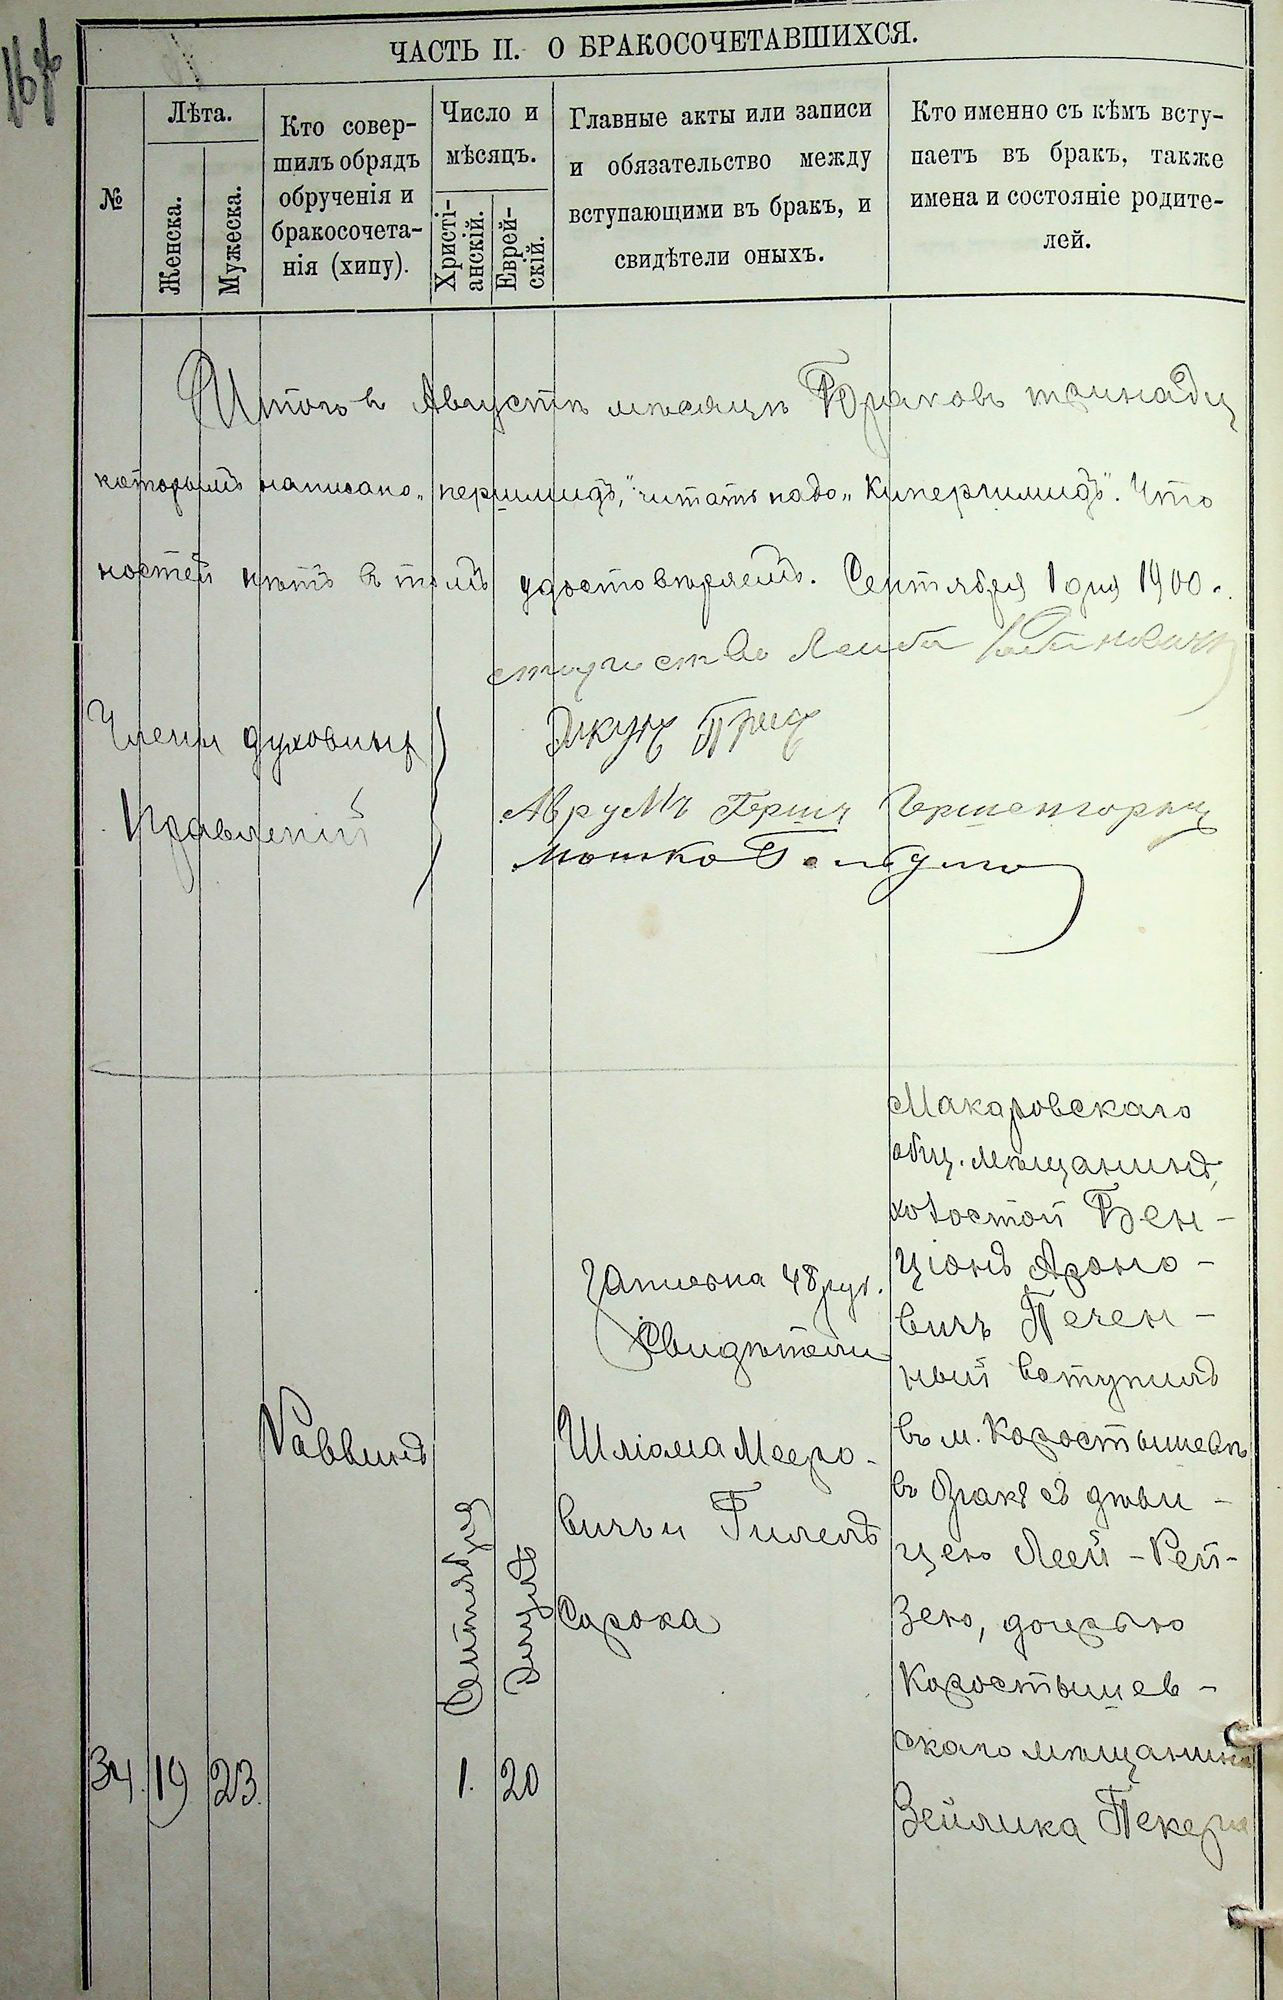 ЧАСТЬ II. О БРАКОСОЧЕТАВШИХСЯ.
№
Лѣта.
Женска.
Мужеска.
Кто совер-
шилъ обрядъ
обрученія и
бракосочета-
нія (хипу).
Число и
мѣсяцъ.
Христі-
анскій.
Еврей-
скій.
Главные акты или записи
и обязательство между
вступающими въ бракъ, и
свидѣтели оныхъ.
Кто именно съ кѣмъ всту-
паетъ въ бракъ, также
имена и состояніе родите-
лей.
Итого въ Августѣ мѣсяцѣ Браковъ тринадц
которымъ написано „ершмидъ,“ читать надо „Купершмидъ“. Что
ностей нѣтъ въ томъ удостовѣряемъ. Сентября 1 дня 1900 г.
Лейба
Члены духовныхъ
Правленій
Аврумъ Гершъ
Мошко
34. 19 23.
Раввинъ
Сентября
1.
Элула
20
Записана 48 руб.
Свидѣтели
Шліома Мееро-
вичъ и Гилель
Сорока
Макаровскаго
общ. мѣщанинъ,
холостой Бен-
ціонъ Ароно-
вичъ Печен-
ный вступилъ
въ м. Коростышевѣ
въ бракъ съ дѣви-
цею Леей-Рей-
зею, дочерью
Коростышев-
скаго мѣщанина
Зейлика Пекера